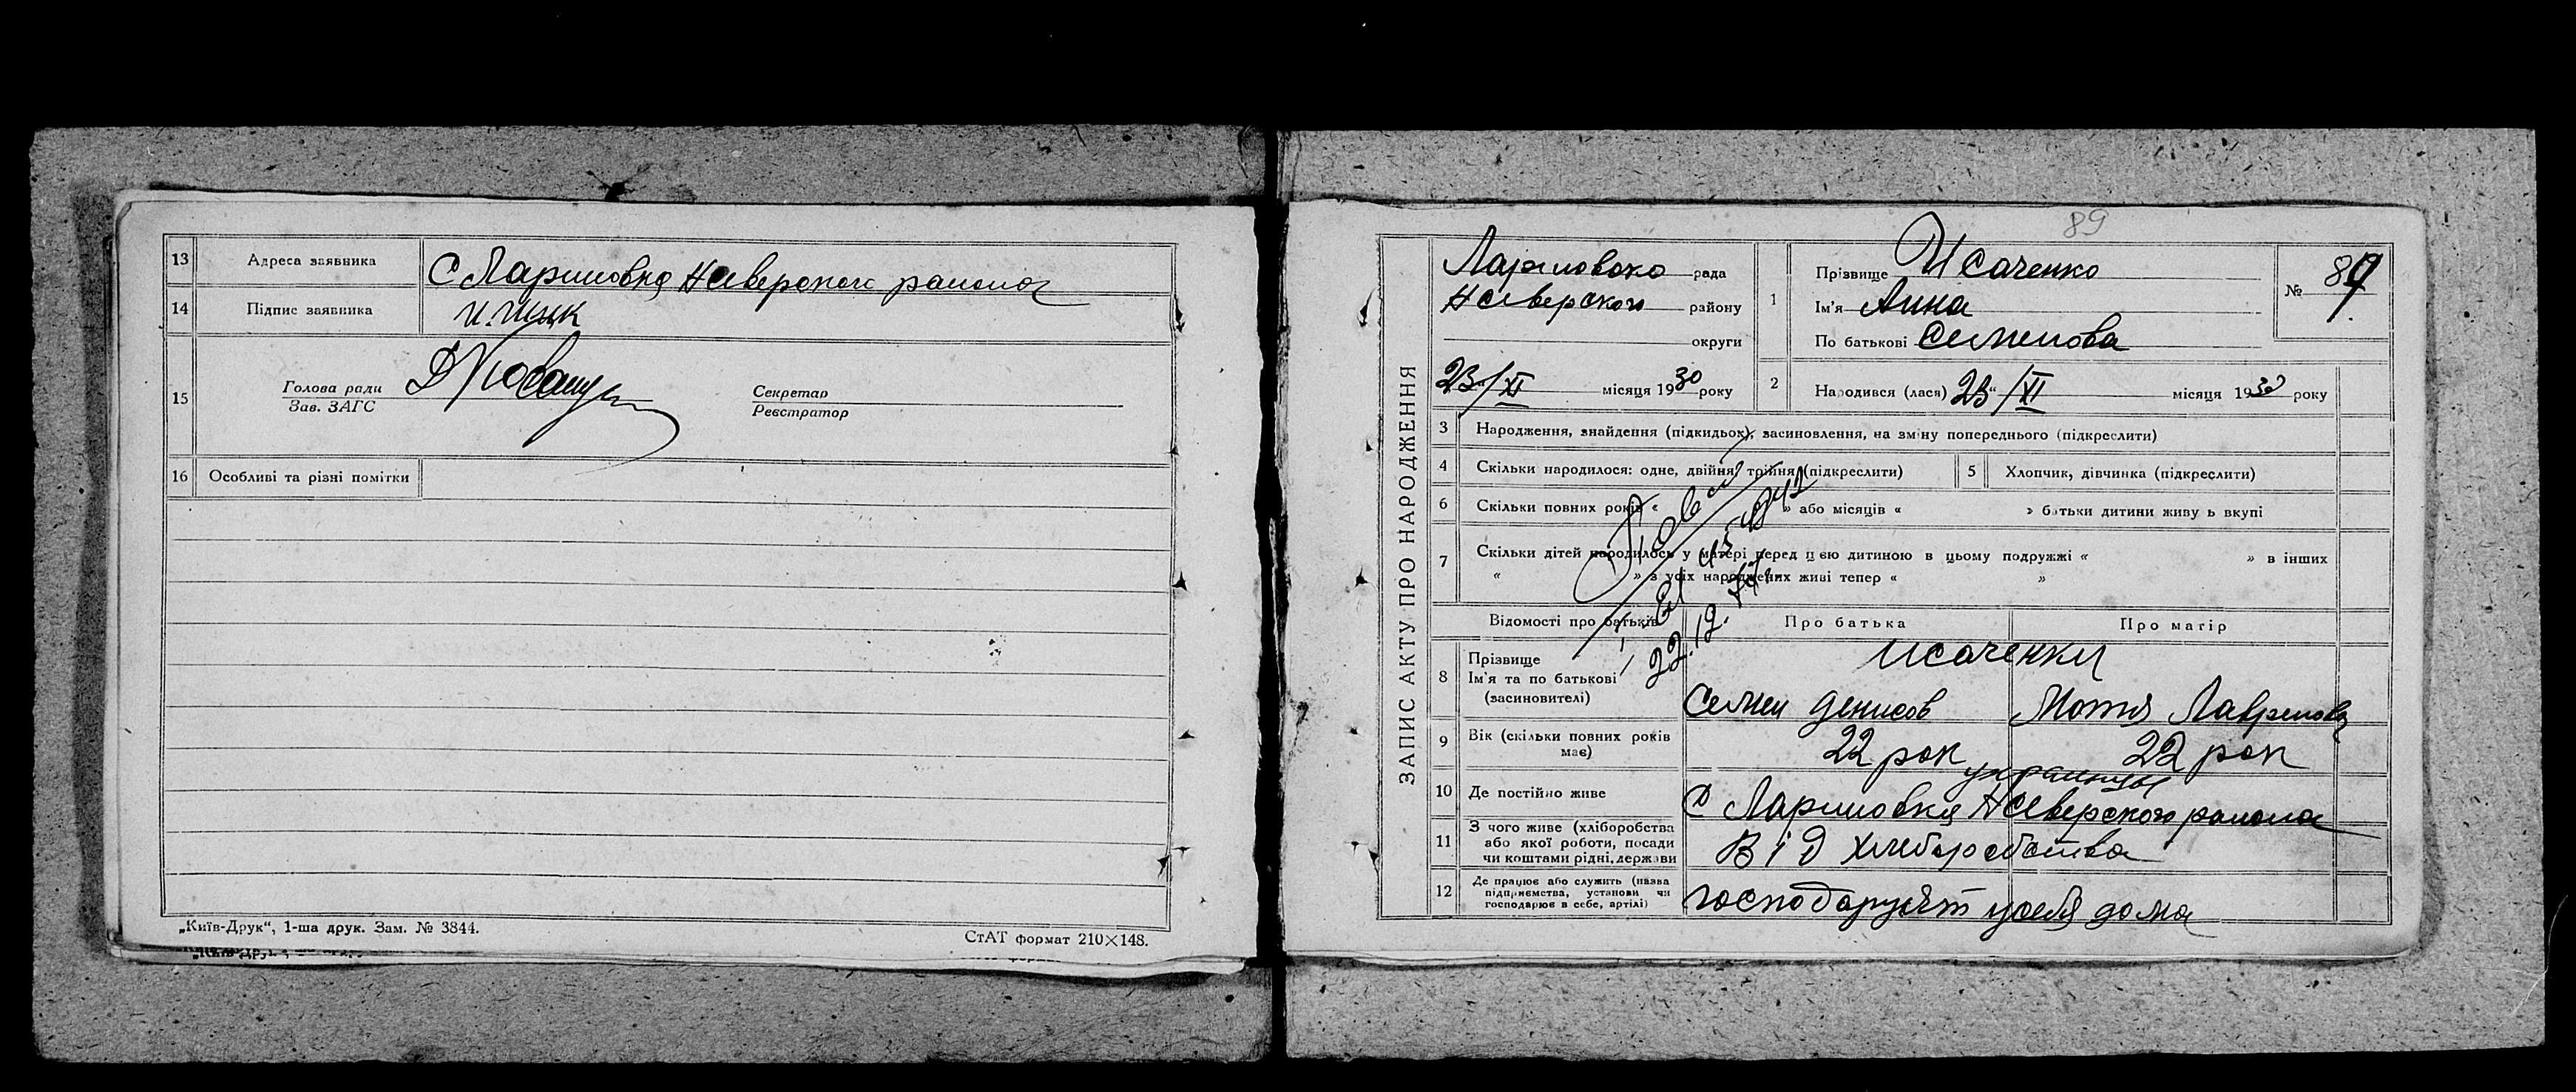 13 Адреса заявника С Лариновка НСеверского района
14 Підпис заявника
15 Голова ради
Зав. ЗАГС
Секретар
Реєстратор
16 Особливі та різні помітки
„Київ-Друк“, 1-ша друк. Зам. № 3844.
СтАТ формат 210×148.
89
ЗАПИС АКТУ ПРО НАРОДЖЕННЯ
рада
НСеверского району
округи
23/XI місяця 1930 року
1 Прізвище Исаченко
Ім'я Анна
По батькові Семенова
№ 89
2 Народився (лася) 23/XI місяця 1930 року
3 Народження, знайдення (підкидьок), засиновлення, на зміну попереднього (підкреслити)
4 Скільки народилося: одне, двійня, трійня (підкреслити)
5 Хлопчик, дівчинка (підкреслити)
6 Скільки повних років « » або місяців « » батьки дитини живуть вкупі
7 Скільки дітей народилось у матері перед цією дитиною в цьому подружжі « » в інших
« » з усіх народжених живі тепер « »
22.12.
Відомості про батьків Про батька Про матір
8 Прізвище
Ім'я та по батькові
(засиновителі)
Исаченки
Семен Денисов Мотя Лавренова
9 Вік (скільки повних років має) 22 рок 22 рок
украинцы
10 Де постійно живе С Лариновка НСеверского района
11 З чого живе (хліборобства
або якої роботи, посади
чи коштами рідні, держави
Від хлеборобства
12 Де працює або служить (назва
підприємства, установи чи
господарює в себе, артілі)
господаруют у себя дома